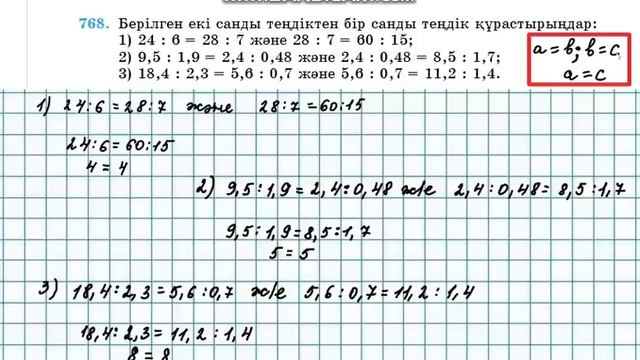 768. Берілген екі санды теңдіктен бір санды теңдік құрастырыңдар:
1) 24 : 6 = 28 : 7 және 28 : 7 = 60 : 15;
2) 9,5 : 1,9 = 2,4 : 0,48 және 2,4 : 0,48 = 8,5 : 1,7;
3) 18,4 : 2,3 = 5,6 : 0,7 және 5,6 : 0,7 = 11,2 : 1,4.
a = b; b = c
a = c
1) 24:6 = 28:7 және 28:7 = 60:15
24:6 = 60:15
4 = 4
2) 9,5:1,9 = 2,4:0,48 ж/е 2,4:0,48 = 8,5:1,7
9,5:1,9 = 8,5:1,7
5 = 5
3) 18,4:2,3 = 5,6:0,7 ж/е 5,6:0,7 = 11,2:1,4
18,4:2,3 = 11,2:1,4
8 = 8